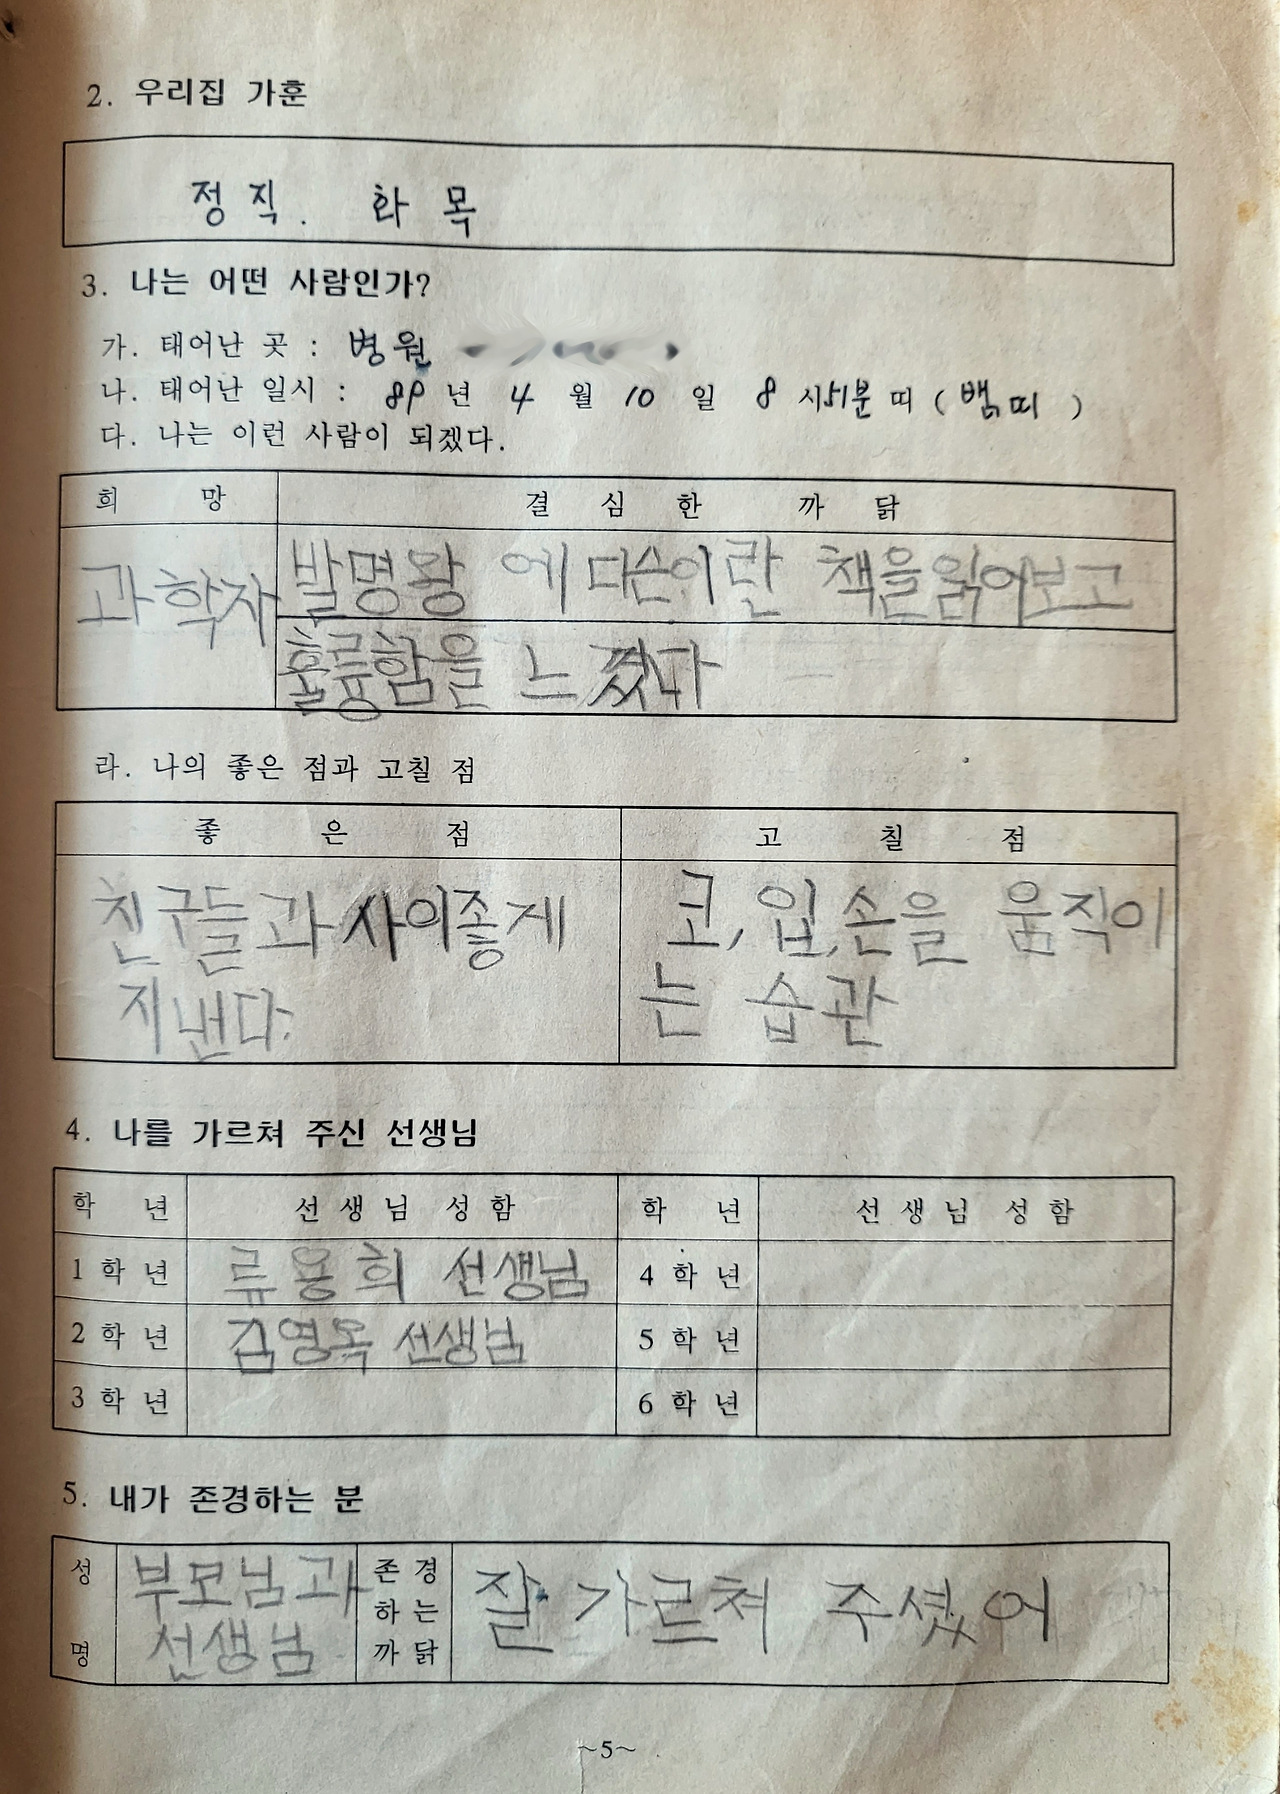 2. 우리집 가훈
정직. 화목
3. 나는 어떤 사람인가?
가. 태어난 곳 : 병원
나. 태어난 일시 : 89 년 4 월 10 일 8 시51분 띠 ( 뱀띠 )
다. 나는 이런 사람이 되겠다.
희 망 결 심 한 까 닭
과학자 발명왕 에디슨이란 책을읽어보고
훌륭함을 느꼈다
라. 나의 좋은 점과 고칠 점
좋 은 점 고 칠 점
친구들과 사이좋게 코, 입, 손을 움직이
지낸다. 는 습관
4. 나를 가르쳐 주신 선생님
학 년 선 생 님 성 함 학 년 선 생 님 성 함
1 학 년 류용희 선생님 4 학 년
2 학 년 김영옥 선생님 5 학 년
3 학 년 6 학 년
5. 내가 존경하는 분
성명 부모님과 선생님 존경하는 까닭 잘 가르쳐 주셨어
~5~